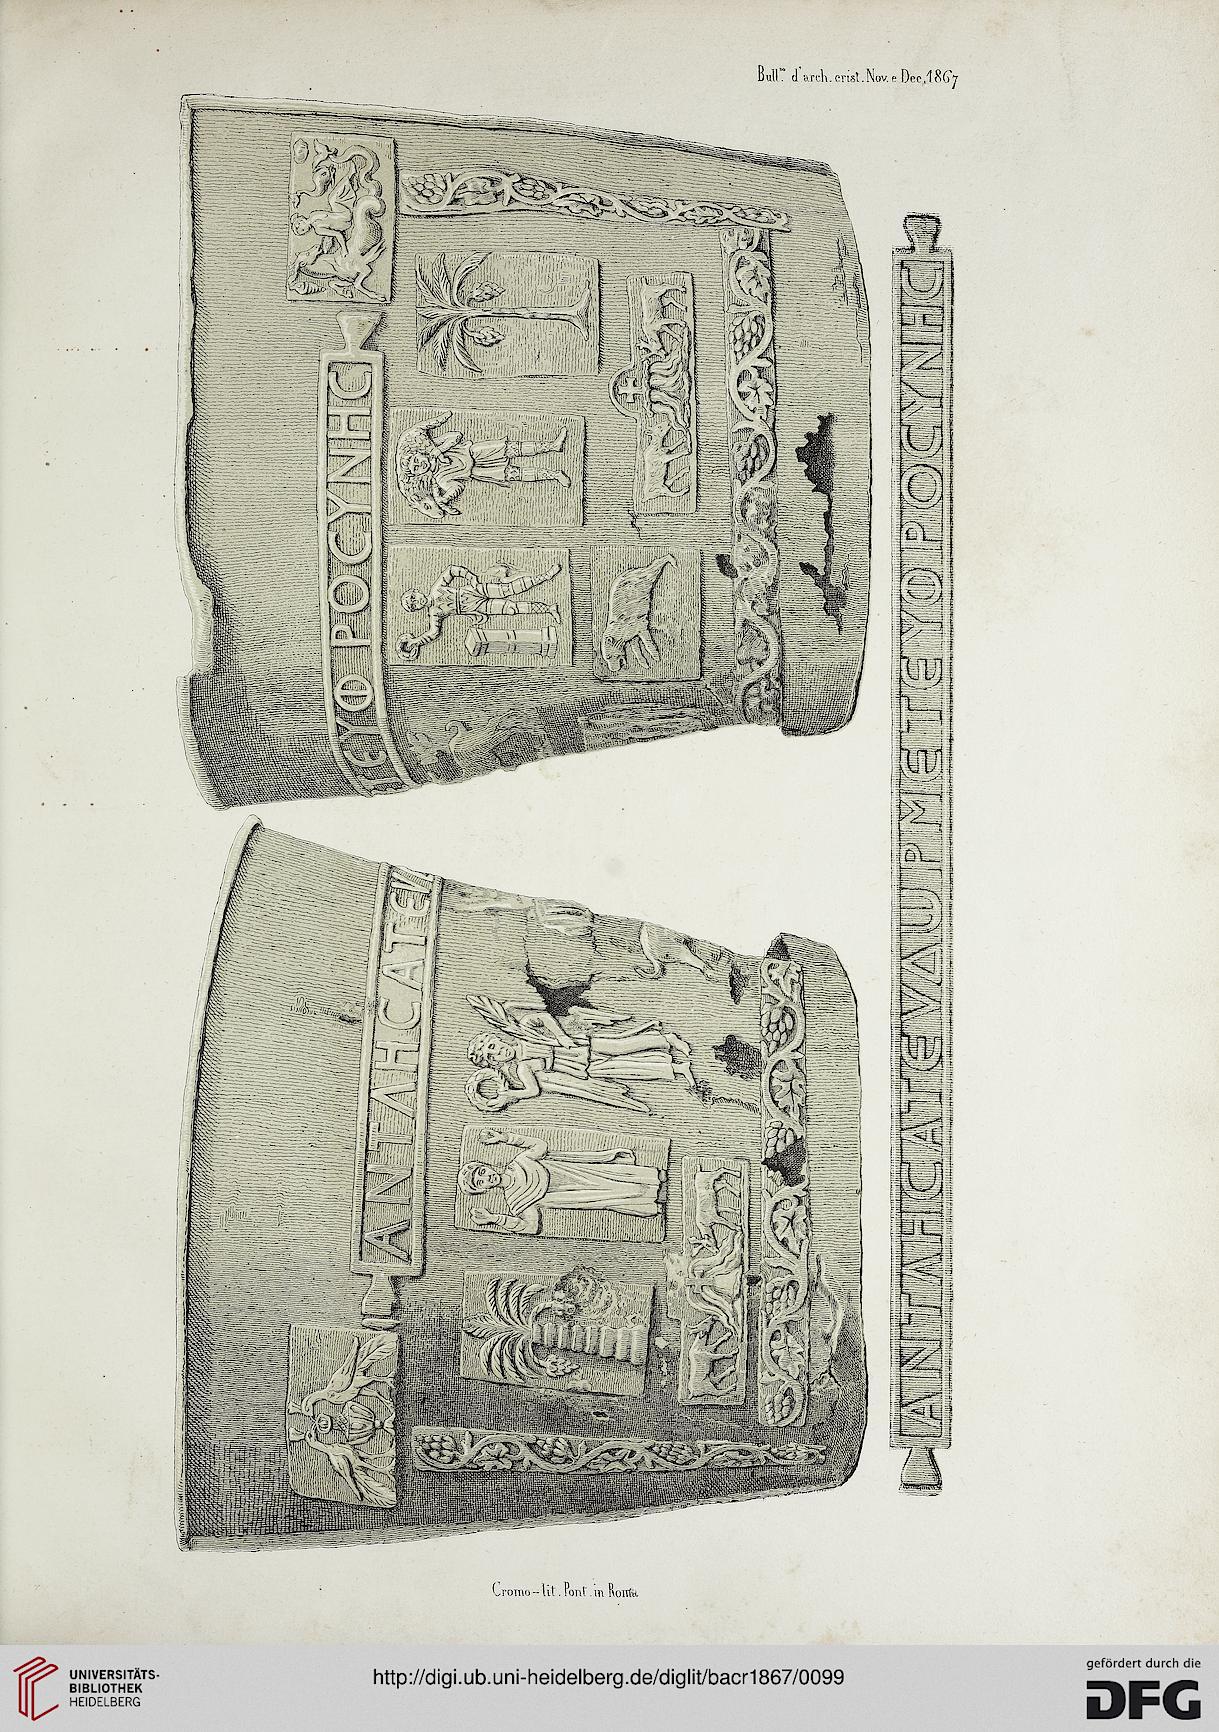 Bull.<sup>no</sup> d'arch. crist. Nov. e Dec. 1867
ΤΕΥΦΡΟCΥΝΗC
ΑΝΤΛΗCΑΤΕΥ
ΑΝΤΛΗCΑΤΕΥΔΩΡΜΕΤΕΥΦΡΟCΥΝΗC
Cromo-lit. Pont. in Roma
UNIVERSITÄTS-
BIBLIOTHEK
HEIDELBERG
http://digi.ub.uni-heidelberg.de/diglit/bacr1867/0099
gefördert durch die
DFG